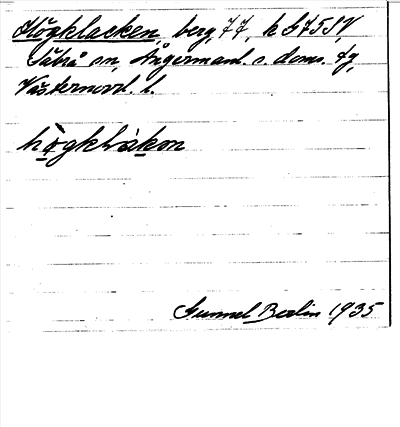 Högklacken, berg, 77, k G75SV,
Säbrå sn, Ångermanl. s. doms. fg,
Västernorrl. l.
högklàkən
Gunnel Berlin 1935